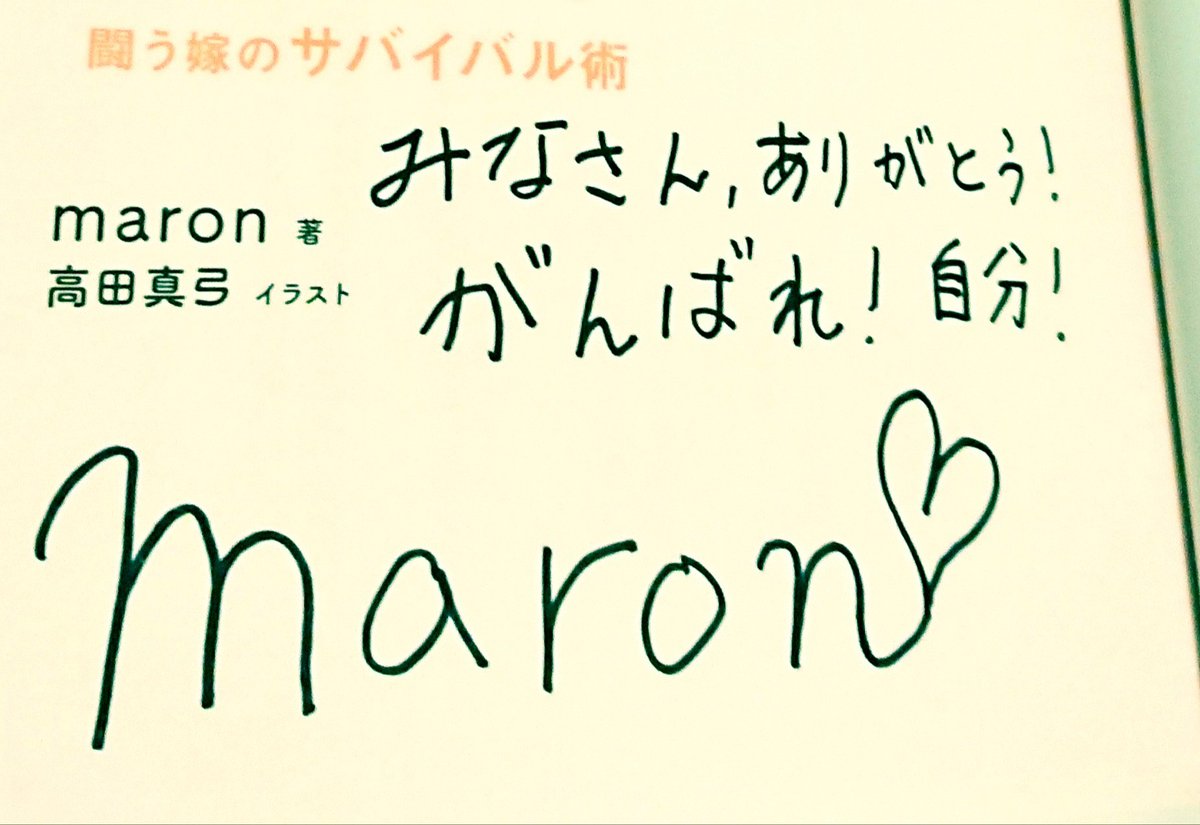 闘う嫁のサバイバル術
みなさん,ありがとう!
maron 著
高田真弓 イラスト
がんばれ!自分!
maron